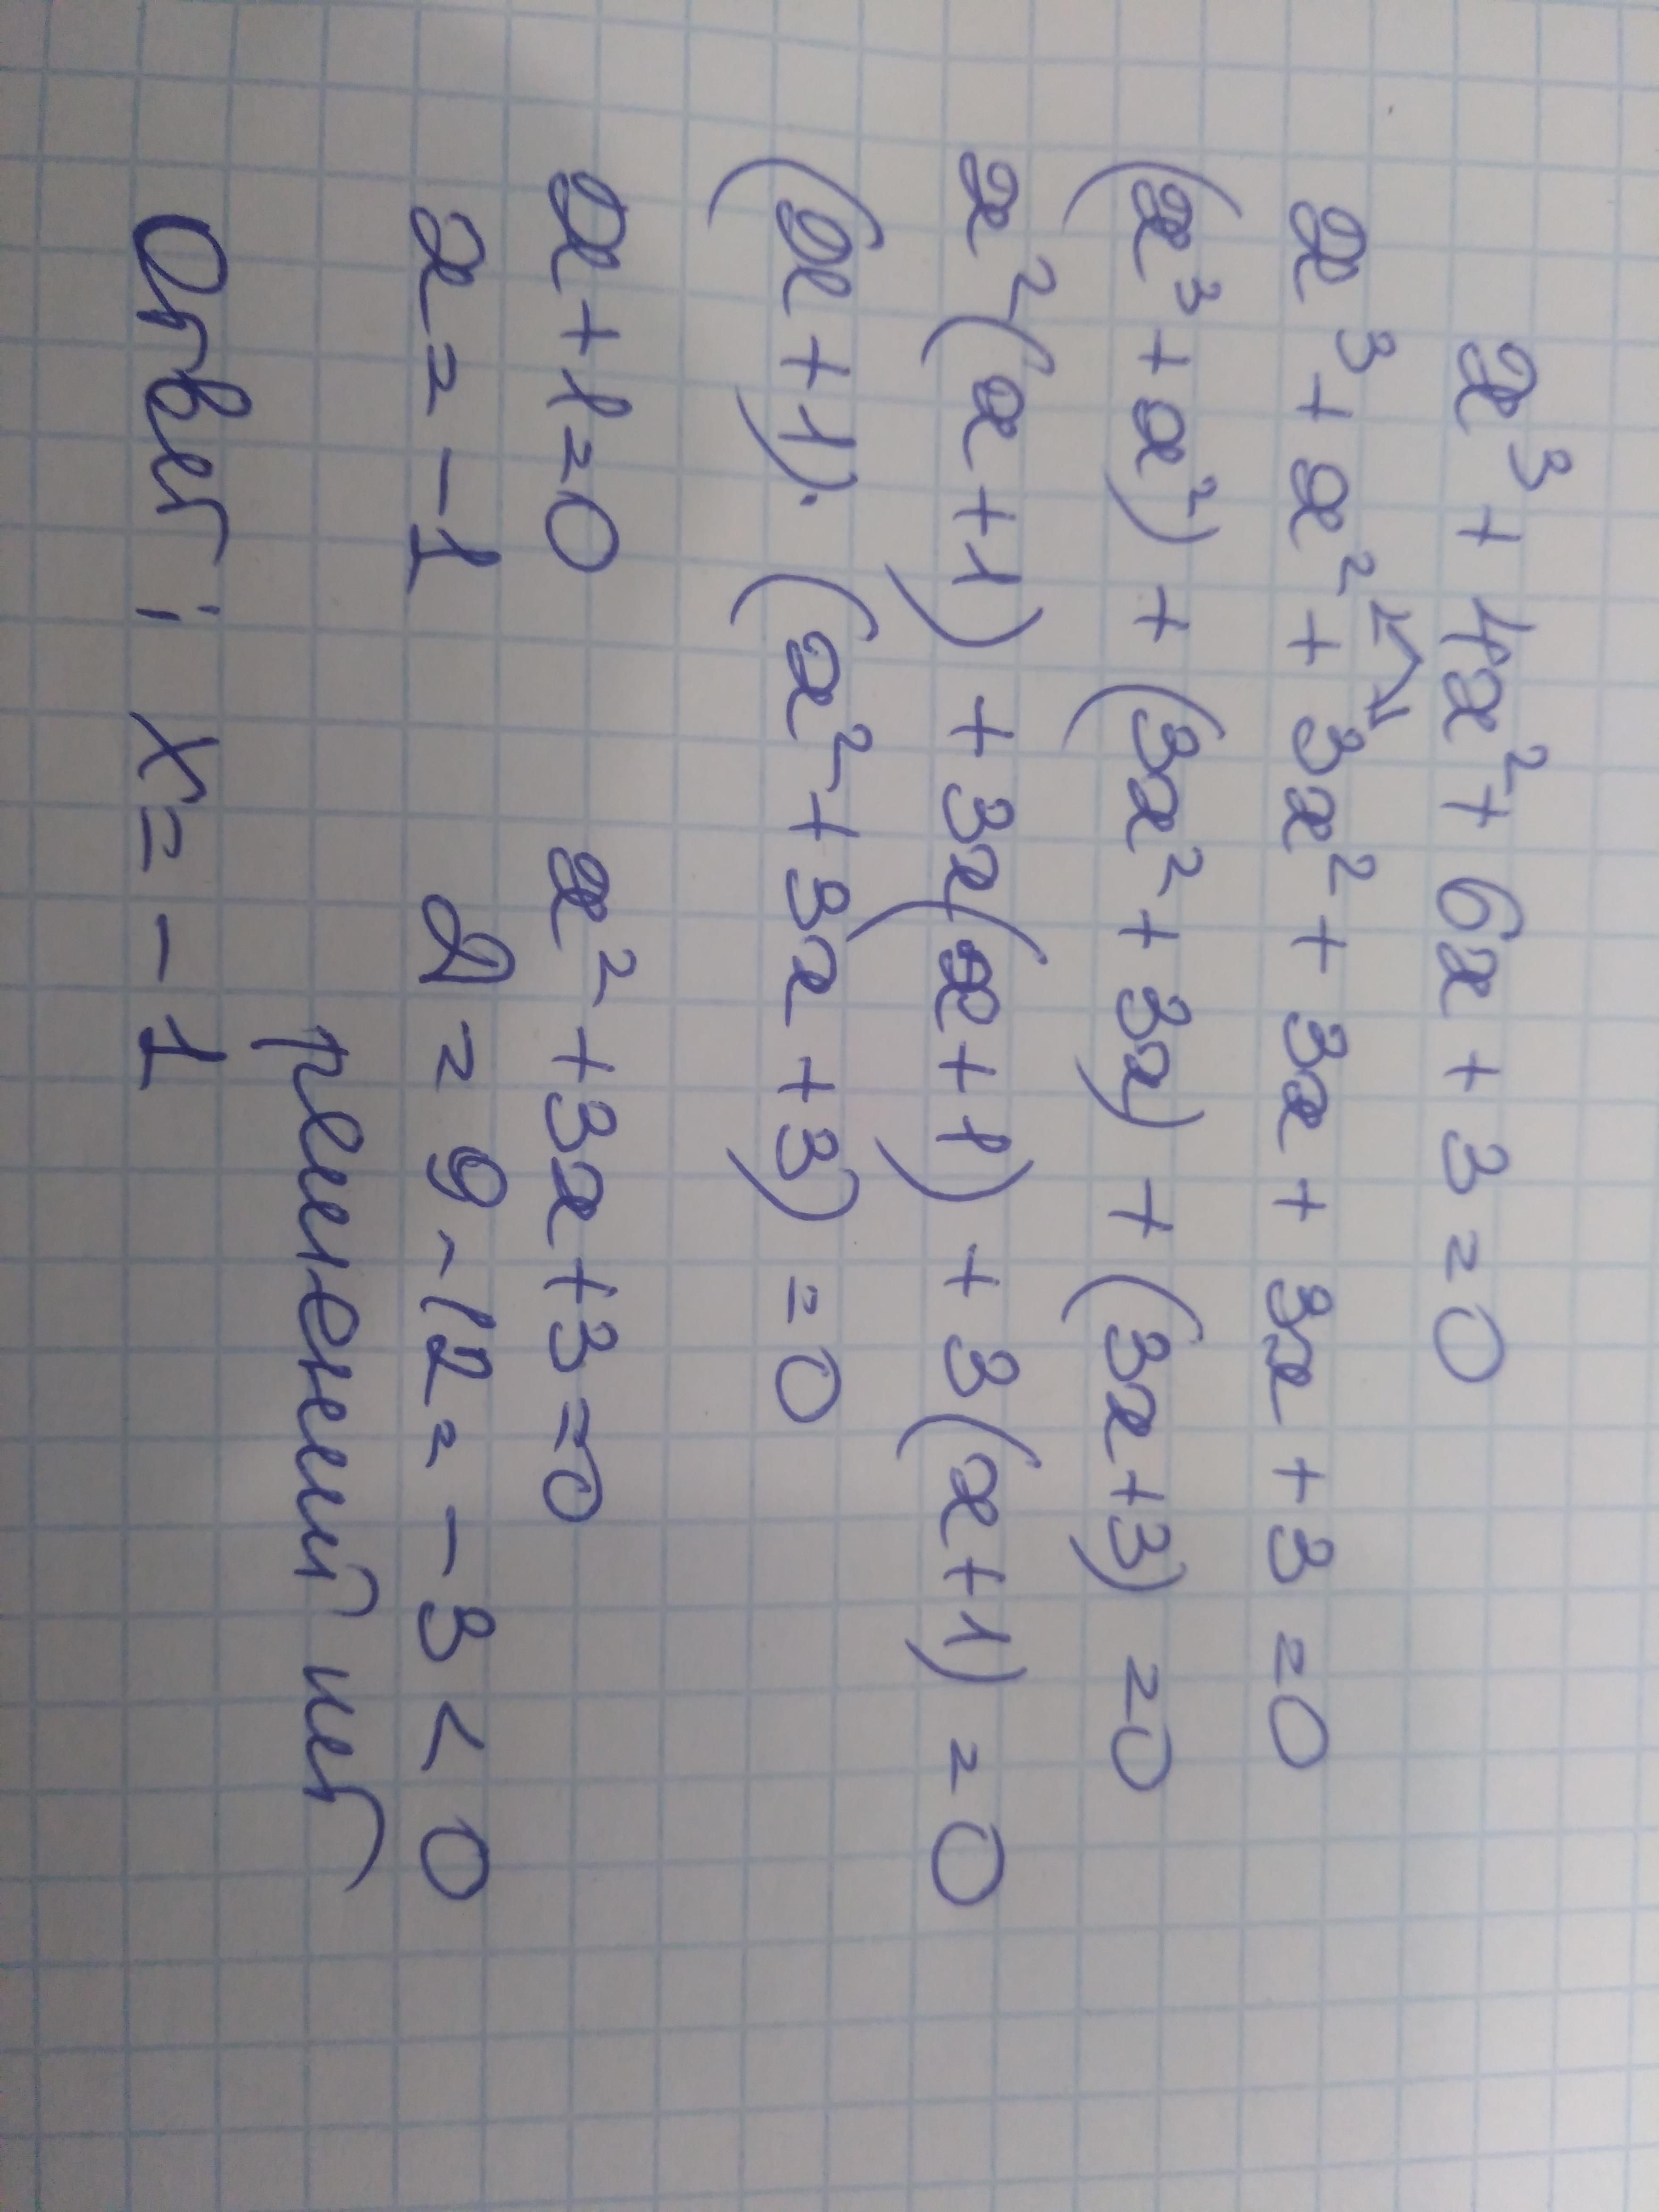 x³ + 4x² + 6x + 3 = 0
x³ + x² + 3x² + 3x + 3x + 3 = 0
(x³ + x²) + (3x² + 3x) + (3x + 3) = 0
x²(x + 1) + 3x(x + 1) + 3(x + 1) = 0
(x + 1) · (x² + 3x + 3) = 0
x + 1 = 0 x² + 3x + 3 = 0
x = -1 D = 9 - 12 = -3 < 0
решений нет
Ответ: x = -1